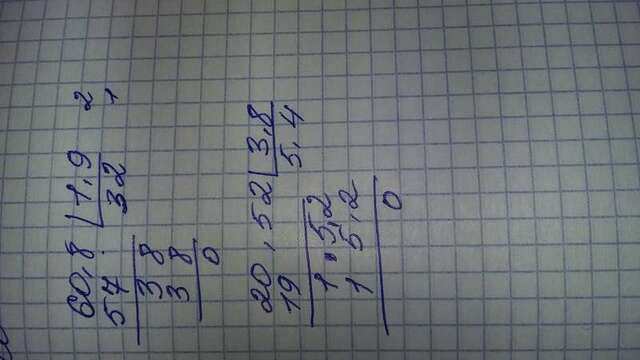 60,8 1,9 2
57 32 1
38
38
0
20,52 3,8
19 5,4
1 5,2
1 5,2
0